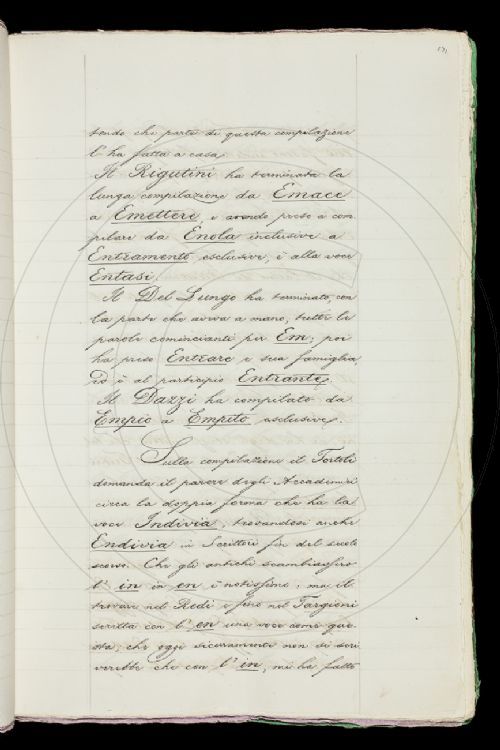 171
tendo che parte di questa compilazione
l'ha fatta a casa.
Il Rigutini ha terminata la
lunga compilazione da Emace
a Emettere, e avendo preso a com
pilare da Enola inclusive a
Entramento esclusive, è alla voce
Entasi.
Il Del Lungo ha terminato, con
la parte che aveva a mano, tutte le
parole comincianti per Em; poi
ha preso Entrare e sua famiglia
ed è al participio Entrante.
Il Dazzi ha compilato da
Empio a Empito esclusive.
Sulla compilazione il Tortoli
domanda il parere degli Accademici
circa la doppia forma che ha la
voce Indivia, trovandosi anche
Endivia in Scrittori fin del secolo
scorso. Che gli antichi scambiassero
l' in in en è notissimo; ma il
trovare nel Redi e fino nel Targioni
scritta con l' en una voce come que
sta, che oggi sicuramente non si scri
verebbe che con l' in, mi ha fatto